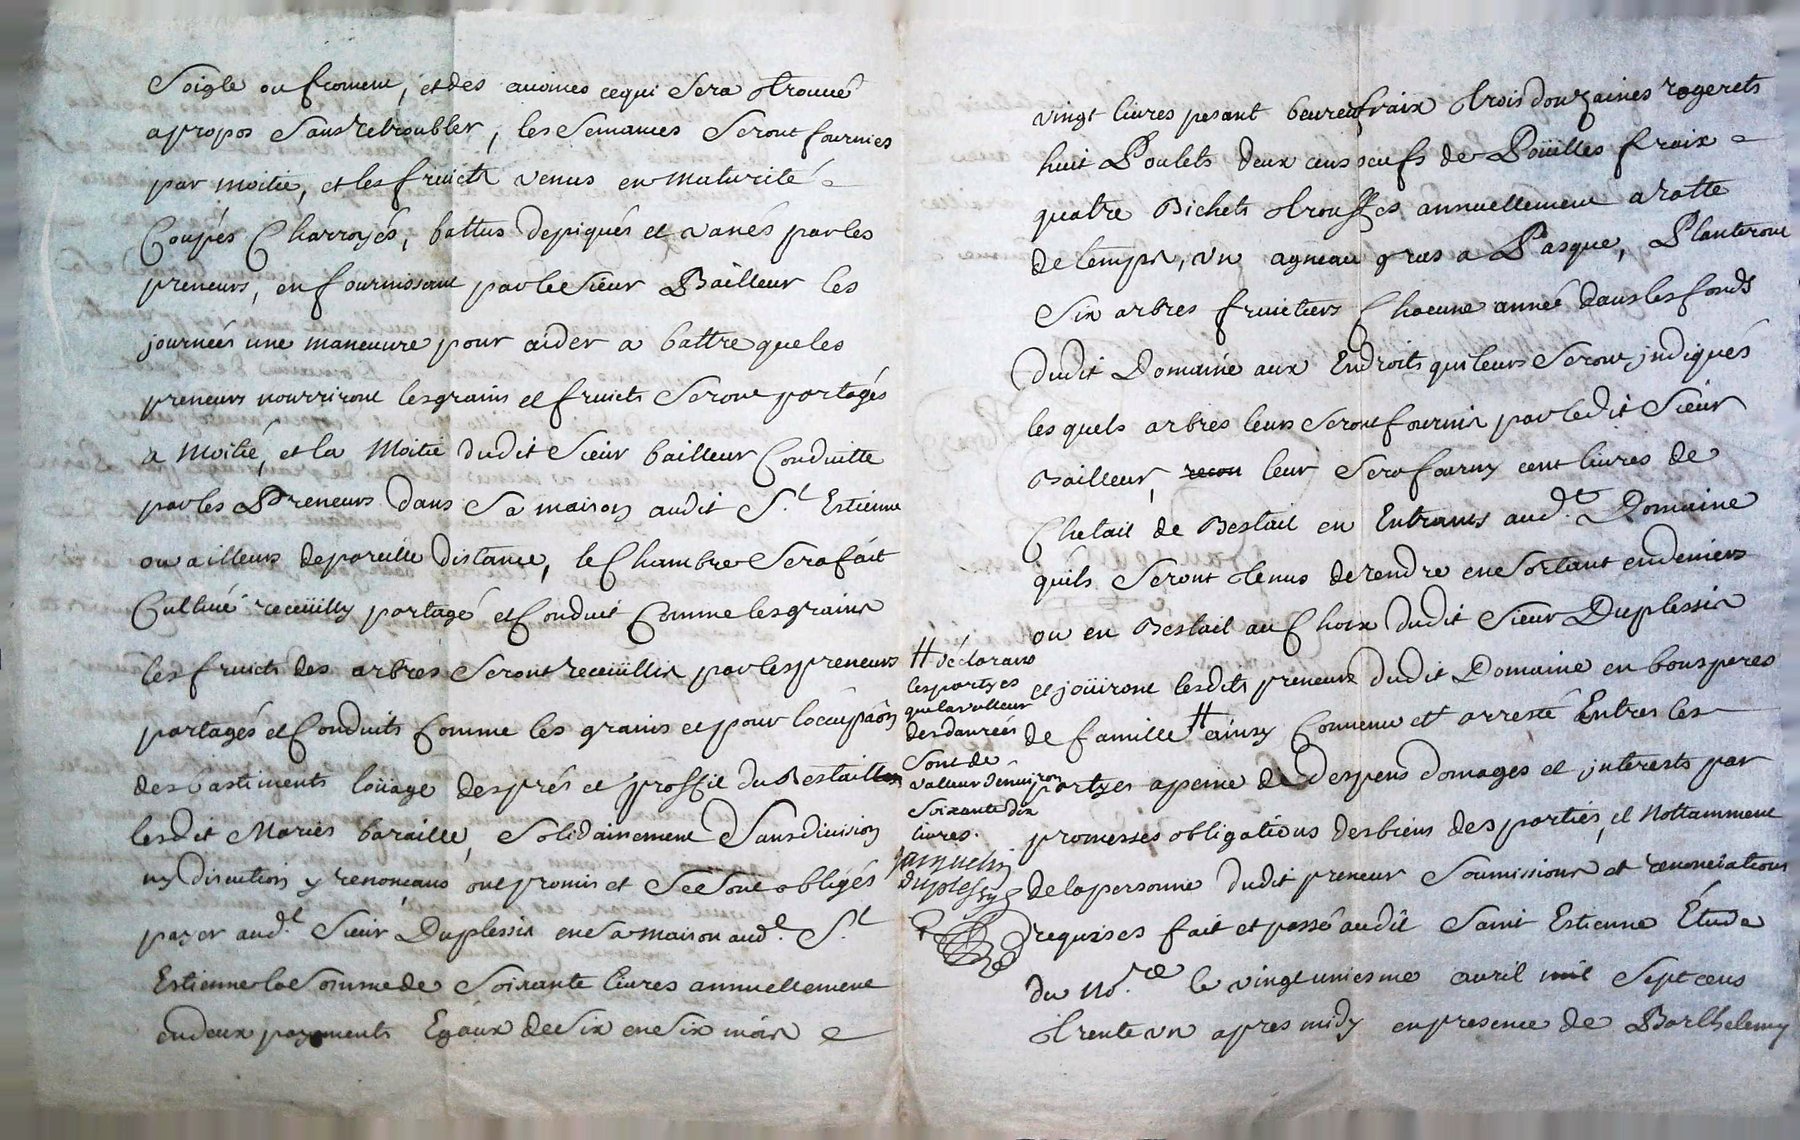 Soigle ou froment, et des avoines cequi Sera trouué
apropos Sans retroubler, les Semances Seront fournies
par moitié, et les fruicts venus en maturité
Coupés Charroyés, battus depiqués et vanés par les
preneurs, en fournissant par le Sieur Bailleur les
journées une maneuure pour aider a battre que les
preneurs nourriront les grains et fruicts Seront partagés
a Moitié, et la Moitié dudit Sieur bailleur Conduitte
par les Preneurs dans Sa maison audit St. Estienne
ou ailleurs depareille distance, le Chambre Sera fait
Cultiué receüilly partagé et Conduit Comme les grains
les fruicts des arbres Seront receüillis par les preneurs
partagés et Conduits Comme les grains et pour loccupaõn
des bastiments loüage després et proffit du Bestail
lesdit Mariés baraille, Solidairement Sans diuision
ny discution y renonçans ont promis et Se Sont obligés
payer audt. Sieur Duplessis en Sa maison audt. St.
Estienne la Somme de Soixante liures annuellement
en deux payements Egaux de Six en Six mois et
vingt liures pesant beure fraix trois douzaines rogerets
huit Poulets deux cens oeufs de Poüilles fraix
quatre Bichets trouffes annuellement a ratte
de temps, un agneau gras a Pasque, Planteront
Six arbres fruictiers Chacune année dans les fonds
dudit Domaine aux Endroits qui leurs Seront jndiqués
les quels arbres leurs Seront fournis par ledit Sieur
Bailleur, leur Sera fourny cent liures de
Chetail de Bestail en Entrants audt. Domaine
quils Seront tenus de rendre en Sortant en deniers
ou en Bestail au Choix dudit Sieur Duplessis
et joüiront lesdits preneurs dudit Domaine en bons peres
de famille # ainsy Conuenu et arresté Entres les
partyes a peine de despens domages et jnterests par
promesses obligations des biens des parties, et Nottamment
de la personne dudit preneur Soumissions et renonciations
requises fait et passé audit Saint Estienne Étude
du nore. le vingt uniesme auril mil Sept cens
trente un apres midy en presence de Barthelemy
# déclarans
les partyes
que la valleur
des danrées
Sont de
valleur denuiron
Soixante dix
liures.
jamuelin
duplessys